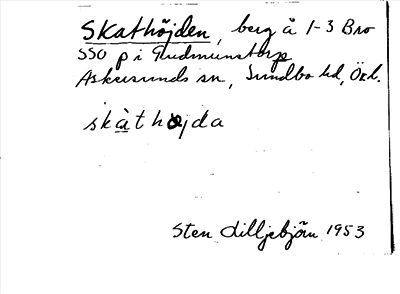 Skathöjden, berg å 1-3 Bro
SSO p i Gudmunstorp
Askersunds sn, Sundbo hd, Örl.
skàthøjda
Sten Lilljebjörn 1953